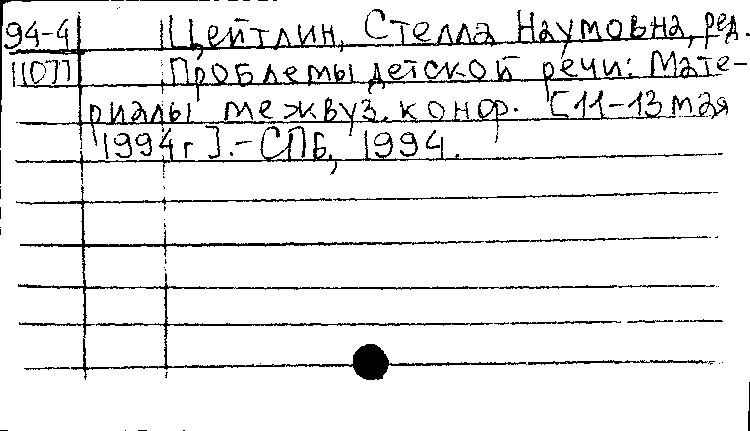 94-4 Цейтлин, Стелла Наумовна, ред.
11077 Проблемы детской речи: Мате-
риалы межвуз. конф. [11-13 мая
1994г].-СПб, 1994.